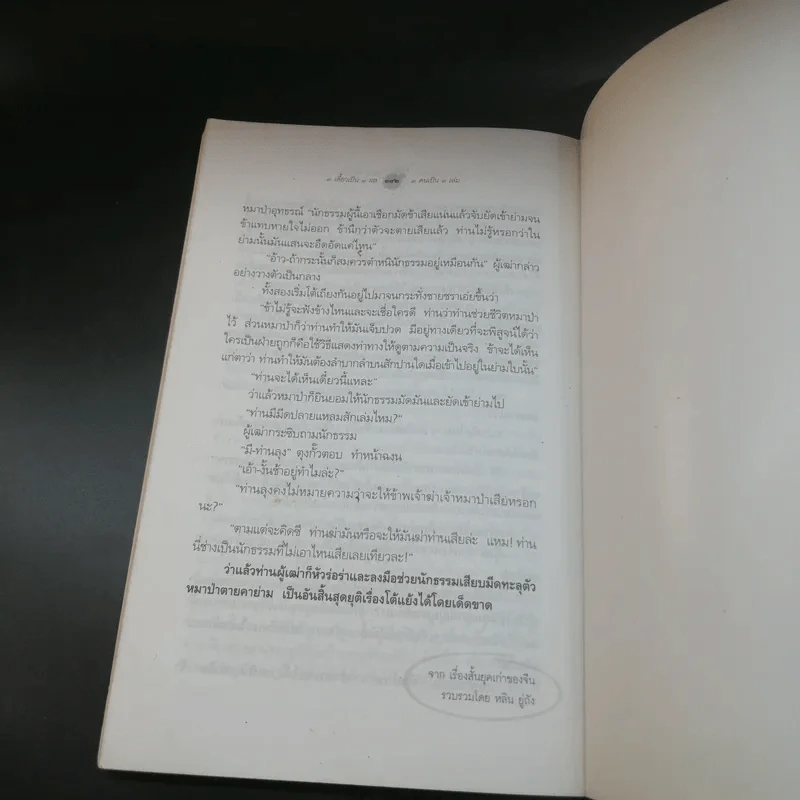 ๓ เสี้ยวเป็น ๑ บท ๑๔๒ ๓ คนเป็น ๑ เล่ม
หมาป่าอุทธรณ์ "นักธรรมผู้นี้เอาเชือกมัดข้าเสียแน่นแล้วจับยัดเข้าย่ามจน
ข้าแทบหายใจไม่ออก ข้านึกว่าตัวจะตายเสียแล้ว ท่านไม่รู้หรอกว่าใน
ย่ามนั้นมันแสนจะอึดอัดแค่ไหน"
"อ้าว-ถ้ากระนั้นก็สมควรตำหนินักธรรมอยู่เหมือนกัน" ผู้เฒ่ากล่าว
อย่างวางตัวเป็นกลาง
ทั้งสองเริ่มโต้เถียงกันอยู่ไปมาจนกระทั่งชายชราเอ่ยขึ้นว่า
"ข้าไม่รู้จะฟังข้างไหนและจะเชื่อใครดี ท่านว่าท่านช่วยชีวิตหมาป่า
ไว้ ส่วนหมาป่าก็ว่าท่านทำให้มันเจ็บปวด มีอยู่ทางเดียวที่จะพิสูจน์ได้ว่า
ใครเป็นฝ่ายถูกก็คือใช้วิธีแสดงท่าทางให้ดูตามความเป็นจริง ข้าจะได้เห็น
แก่ตาว่า ท่านทำให้มันต้องลำบากลำบนสักปานใดเมื่อเข้าไปอยู่ในย่ามใบนั้น"
"ท่านจะได้เห็นเดี๋ยวนี้แหละ"
ว่าแล้วหมาป่าก็ยินยอมให้นักธรรมมัดมันและยัดเข้าย่ามไป
"ท่านมีมีดปลายแหลมสักเล่มไหม?"
ผู้เฒ่ากระซิบถามนักธรรม
"มี-ท่านลุง" ตุงกั๊วตอบ ทำหน้าฉงน
"เอ้า-งั้นช้าอยู่ทำไมล่ะ?"
"ท่านลุงคงไม่หมายความว่าจะให้ข้าพเจ้าฆ่าเจ้าหมาป่าเสียหรอก
นะ?"
"ตามแต่จะคิดซี ท่านฆ่ามันหรือจะให้มันฆ่าท่านเสียล่ะ แหม! ท่าน
นี่ช่างเป็นนักธรรมที่ไม่เอาไหนเสียเลยเทียวละ!"
ว่าแล้วท่านผู้เฒ่าก็หัวร่อร่าและลงมือช่วยนักธรรมเสียบมีดทะลุตัว
หมาป่าตายคาย่าม เป็นอันสิ้นสุดยุติเรื่องโต้แย้งได้โดยเด็ดขาด
จาก เรื่องสั้นยุคเก่าของจีน
รวบรวมโดย หลิน ยู่ถัง